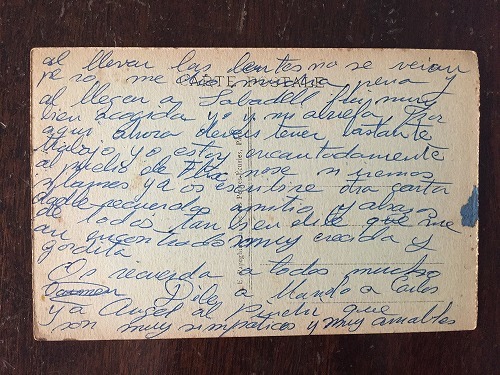 al llevar las lentes no se veian
pero, me dio mucha pena y
CARTE POSTALE
al llegar a Sabadell fui muy
bien acogida yo y mi abuela, Por
aqui ahora debeis tener bastante
trabajo, yo estoy encantadamente
al pueblo de no se si iremos
ya os escribire otra carta
dadle recuerdos a mitio y abrazos
de todos tambien dile que me
an encontrado muy crecida y
gordita
Os recuerda a todos mucho
Carmen Diles a Manolo a Carlos
y a Angel al que
son muy simpaticos y muy amables